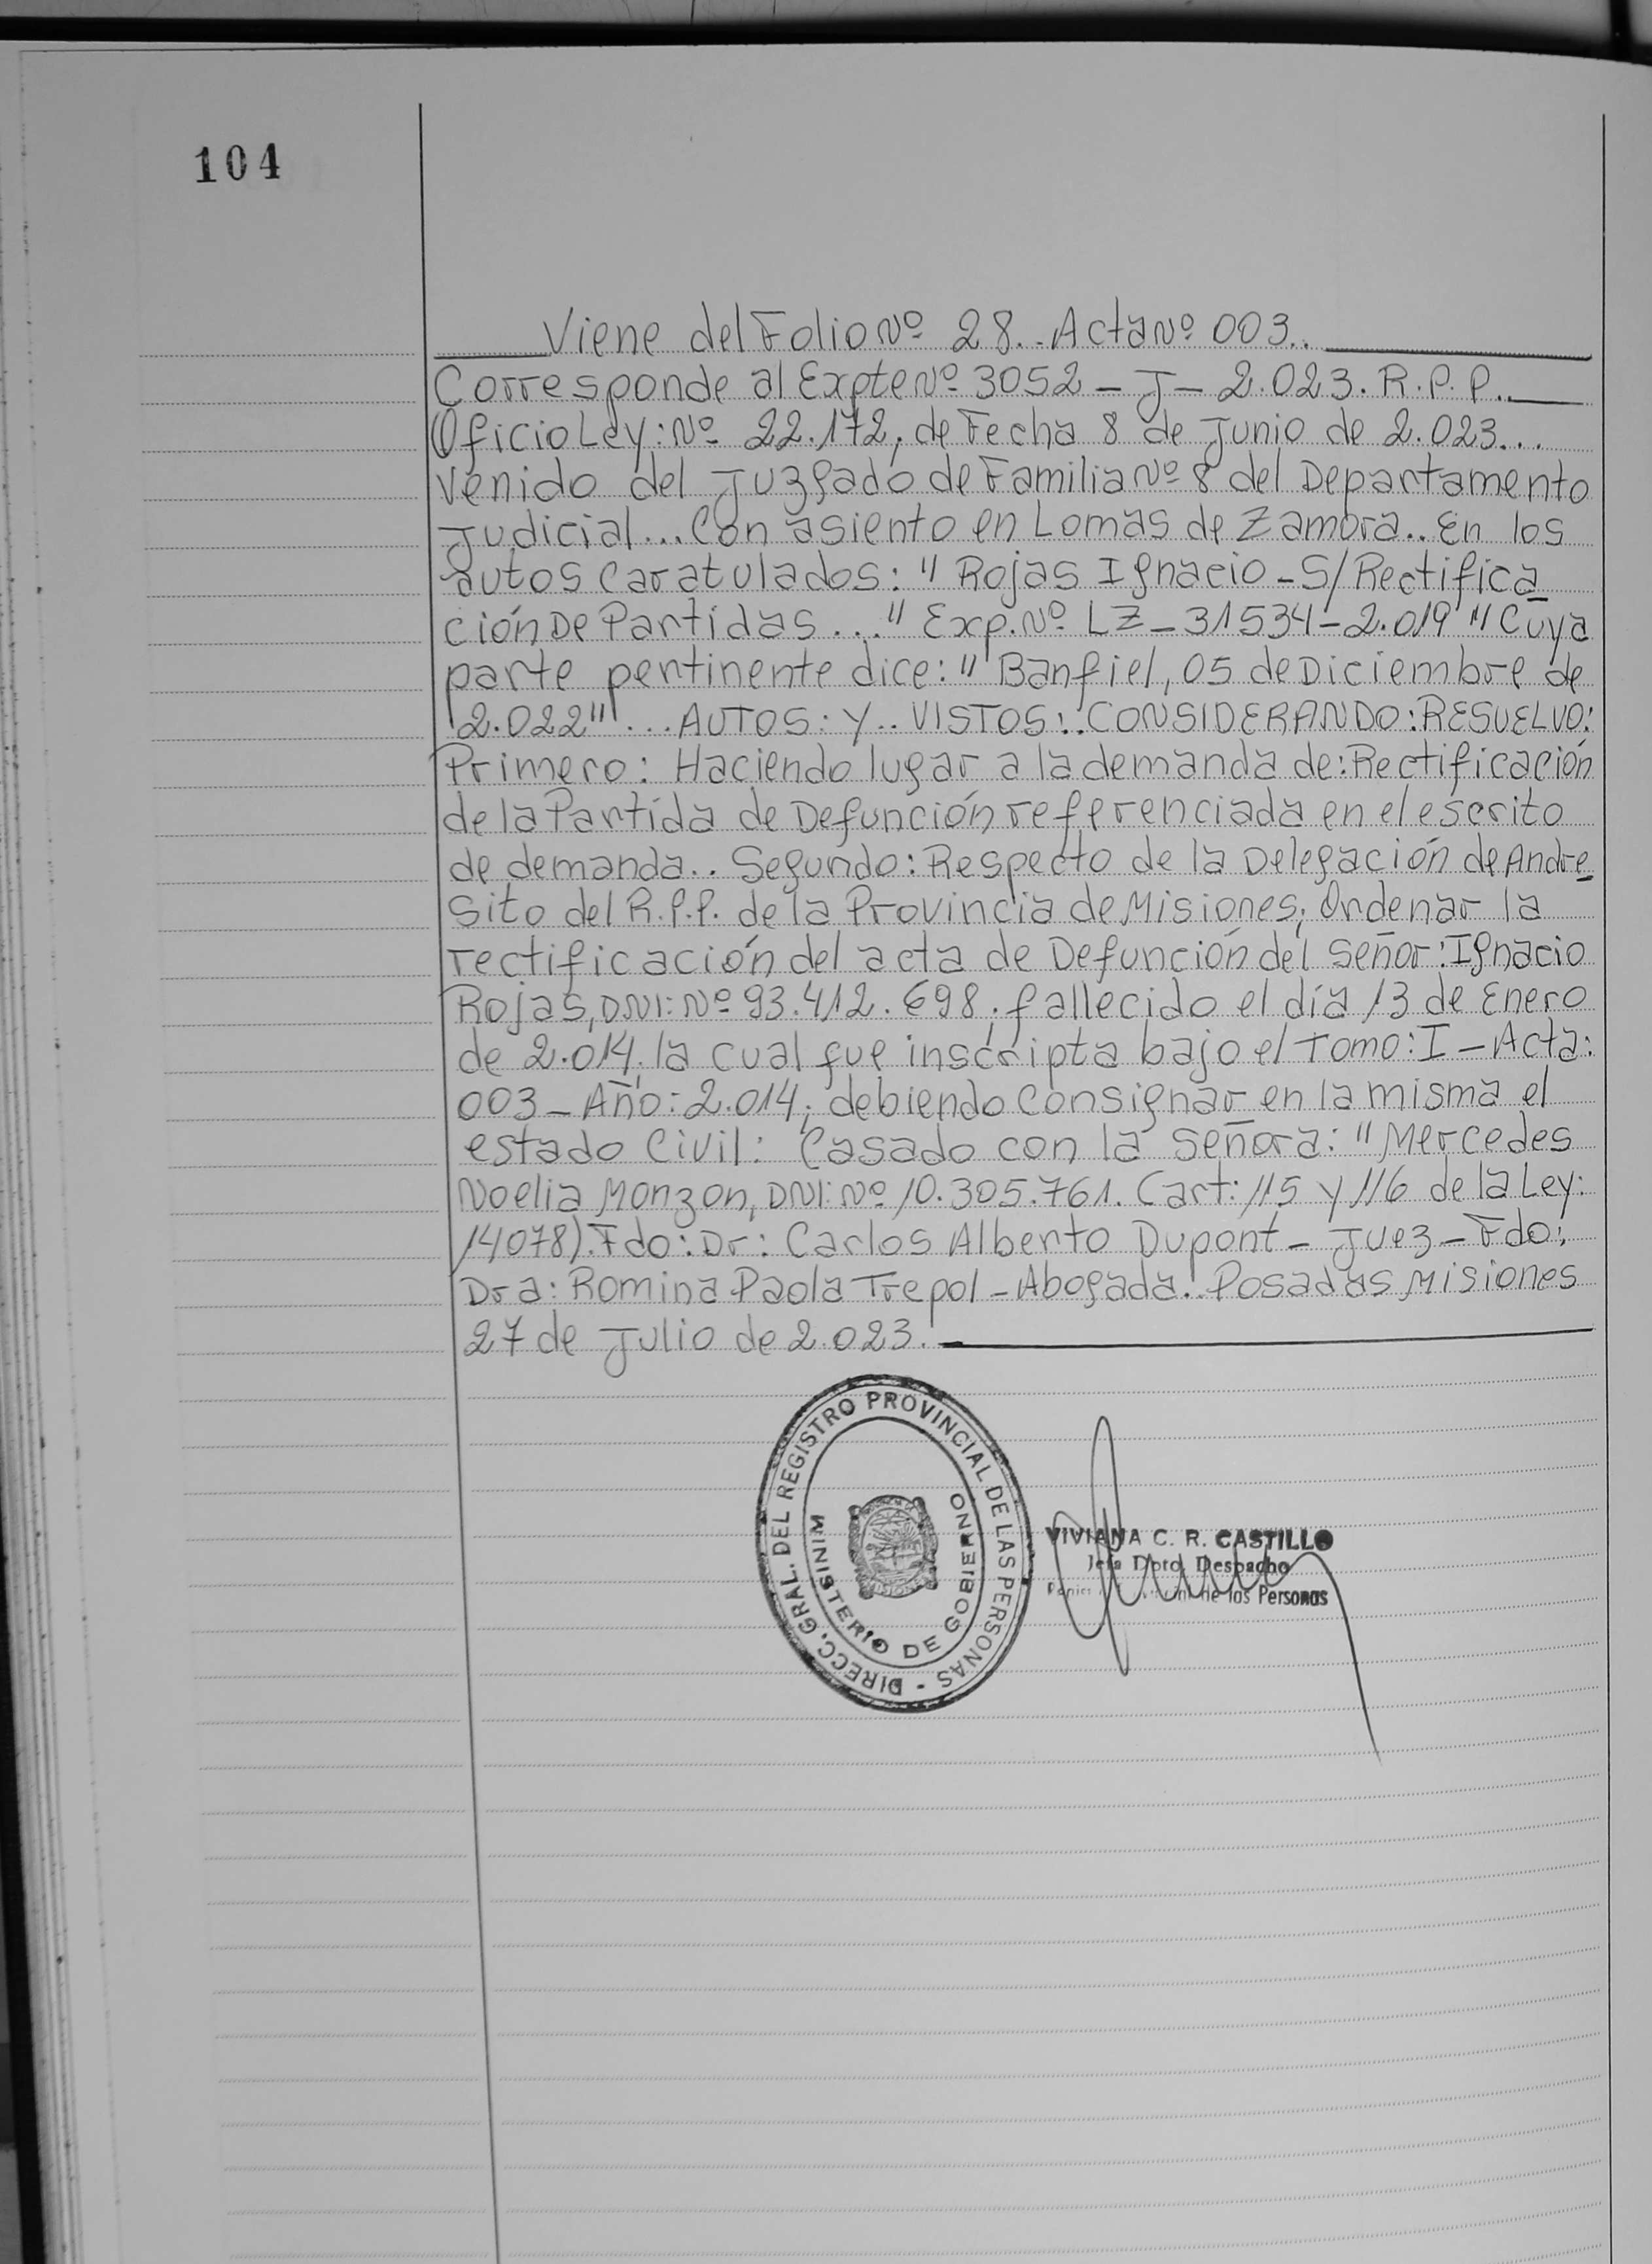 104
Viene del Folio Nº 28.. Acta Nº 003..
Corresponde al Expte Nº 3052 - J - 2.023. R.P.P..
Oficio Ley: Nº 22.172, de Fecha 8 de Junio de 2.023...
Venido del Juzgado de Familia Nº 8 del Departamento
Judicial... Con asiento en Lomas de Zamora.. En los
autos Caratulados: "Rojas Ignacio - S/Rectifica
ción De Partidas..." Exp. Nº LZ - 31534 - 2.019" Cuya
parte pertinente dice: "Banfiel, 05 de Diciembre de
2.022"... AUTOS: Y.. VISTOS:. CONSIDERANDO: RESUELVO:
Primero: Haciendo lugar a la demanda de: Rectificación
de la Partida de Defunción referenciada en el escrito
de demanda.. Segundo: Respecto de la Delegación de Andre
sito del R.P.P. de la Provincia de Misiones, Ordenar la
rectificación del acta de Defunción del Señor: Ignacio
Rojas, DNI: Nº 93.412.698; fallecido el día 13 de Enero
de 2.014; la cual fue inscripta bajo el Tomo: I - Acta:
003 - Año: 2.014; debiendo Consignar en la misma el
estado Civil: Casado con la Señora: "Mercedes
Noelia Monzon, DNI: Nº 10.305.761. Cart: 115 y 116 de la Ley:
14078). Fdo: Dr: Carlos Alberto Dupont - Juez - Fdo:
Dra: Romina Paola Trepol - Abogada.. Posadas Misiones
27 de Julio de 2.023.
DIRECC. GRAL. DEL REGISTRO PROVINCIAL DE LAS PERSONAS -
MINISTERIO DE GOBIERNO
VIVIANA C. R. CASTILLO
Jefa Dpto. Despacho
de las Personas